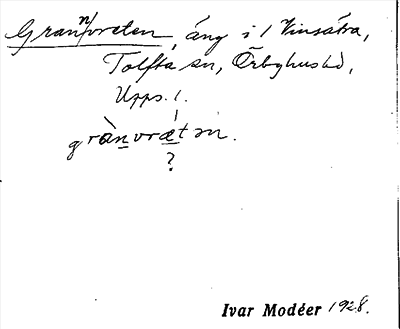 Grann/vreten, äng i 1 Vinsätra,
Tolfta sn, Örbyhus hd,
Upps. l.
grànvrǽtən.
?
Ivar Modéer 1928.